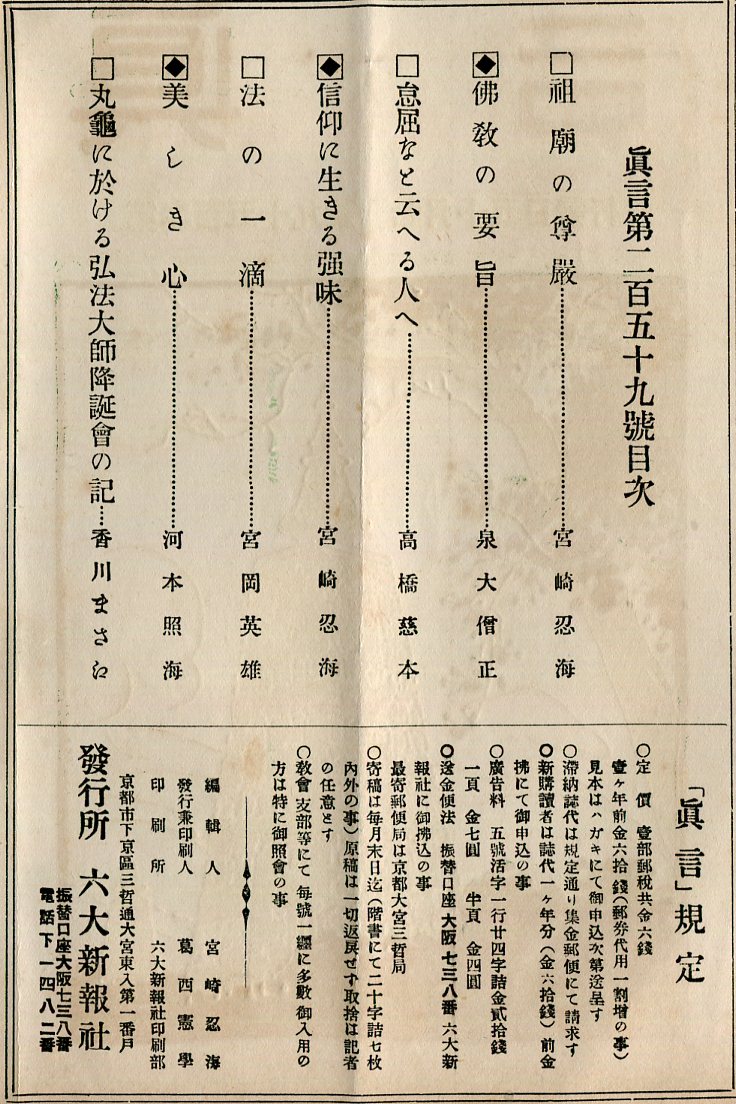 眞言第二百五十九號目次
□祖廟の尊嚴……宮崎忍海
◆佛敎の要旨……泉大僧正
□怠屈なと云へる人へ……高橋慈本
◆信仰に生きる强味……宮崎忍海
□法の一滴……宮岡英雄
◆美しき心……河本照海
□丸龜に於ける弘法大師降誕會の記…香川まさゑ
「眞言」規定
○定價 壹部郵稅共金六錢
壹ヶ年前金六拾錢(郵券代用一割增の事)
見本はハガキにて御申込次第送呈す
○滯納誌代は規定通り集金郵便にて請求す
○新購讀者は誌代一ヶ年分(金六拾錢)前金
拂にて御申込の事
○廣告料 五號活字一行廿四字詰金貳拾錢
一頁 金七圓 半頁 金四圓
○送金便法 振替口座大阪七三八番 六大新
報社に御拂込の事
最寄郵便局は京都大宮三哲局
○寄稿は每月末日迄(階書にて二十字詰七枚
內外の事)原稿は一切返戾せす取捨は記者
の任意とす
○敎會支部等にて每號一纒に多數御入用の
方は特に御照會の事
編輯人 宮崎忍海
發行兼印刷人 葛西憲學
印刷所 六大新報社印刷部
京都市下京區三哲通大宮東入第一番戶
發行所 六大新報社
振替口座大阪七三八番
電話下一四八二番